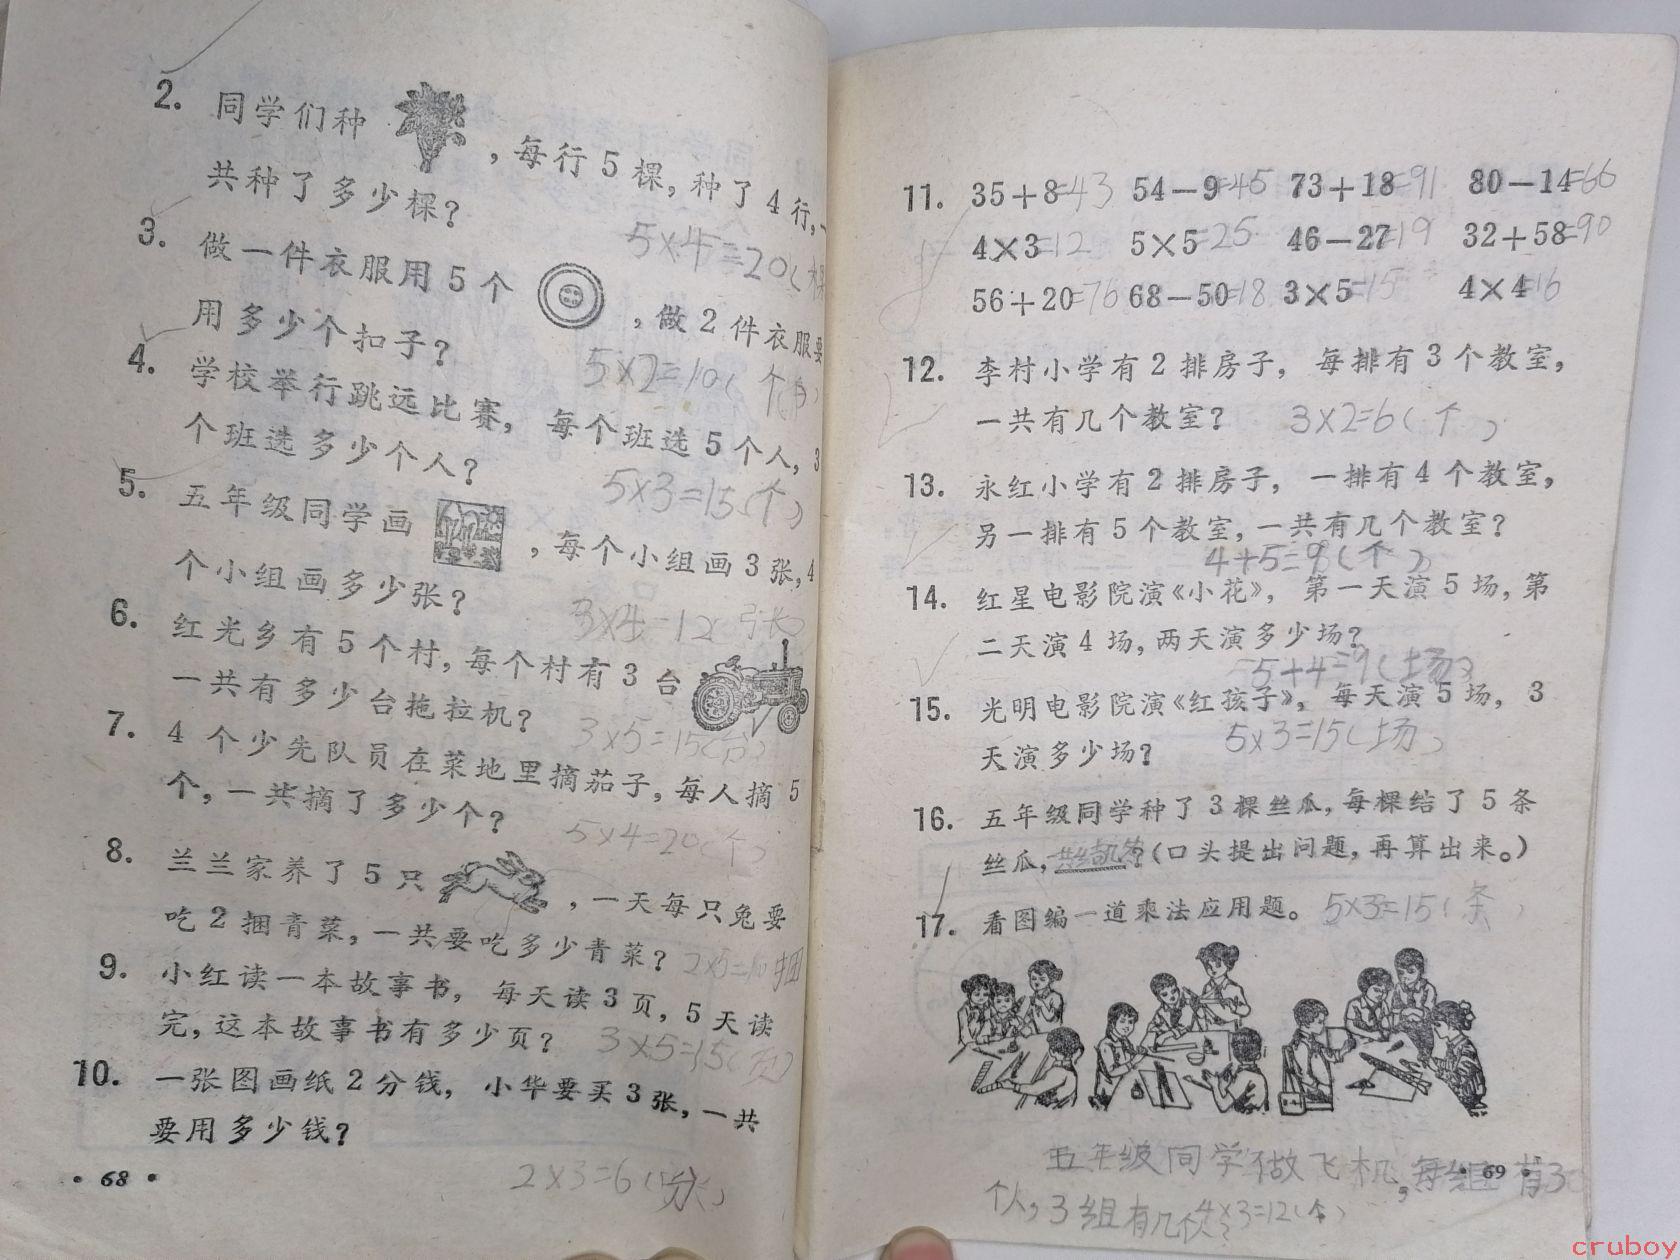 2. 同学们种 ，每行5棵，种了4行，一
共种了多少棵？
5×4=20(棵
3. 做一件衣服用5个 ，做2件衣服要
用多少个扣子？
5×2=10(个)
4. 学校举行跳远比赛，每个班选5个人，3
个班选多少个人？
5×3=15(个)
5. 五年级同学画 ，每个小组画3张，4
个小组画多少张？
3×4=12 张)
6. 红光乡有5个村，每个村有3台
一共有多少台拖拉机？
3×5=15(台)
7. 4个少先队员在菜地里摘茄子，每人摘5
个，一共摘了多少个？
5×4=20(个)
8. 兰兰家养了5只 ，一天每只兔要
吃2捆青菜，一共要吃多少青菜？ 2×5=10捆
9. 小红读一本故事书，每天读3页，5天读
完，这本故事书有多少页？ 3×5=15(页)
10. 一张图画纸2分钱，小华要买3张，一共
要用多少钱？
2×3=6(分)
· 68 ·
11. 35+8=43 54-9=45 73+18=91 80-14=66
4×3=12 5×5=25 46-27=19 32+58=90
56+20=76 68-50=18 3×5=15 4×4=16
12. 李村小学有2排房子，每排有3个教室，
一共有几个教室？ 3×2=6(个)
13. 永红小学有2排房子，一排有4个教室，
另一排有5个教室，一共有几个教室？
4+5=9(个)
14. 红星电影院演《小花》，第一天演5场，第
二天演4场，两天演多少场？
5+4=9(场)
15. 光明电影院演《红孩子》，每天演5场，3
天演多少场？ 5×3=15(场)
16. 五年级同学种了3棵丝瓜，每棵结了5条
丝瓜，？(口头提出问题，再算出来。)
17. 看图编一道乘法应用题。 5×3=15(条)
五年级同学做飞机，每组有
· 69 ·
个人，3组有几个人？ 4×3=12(个)
cruboy